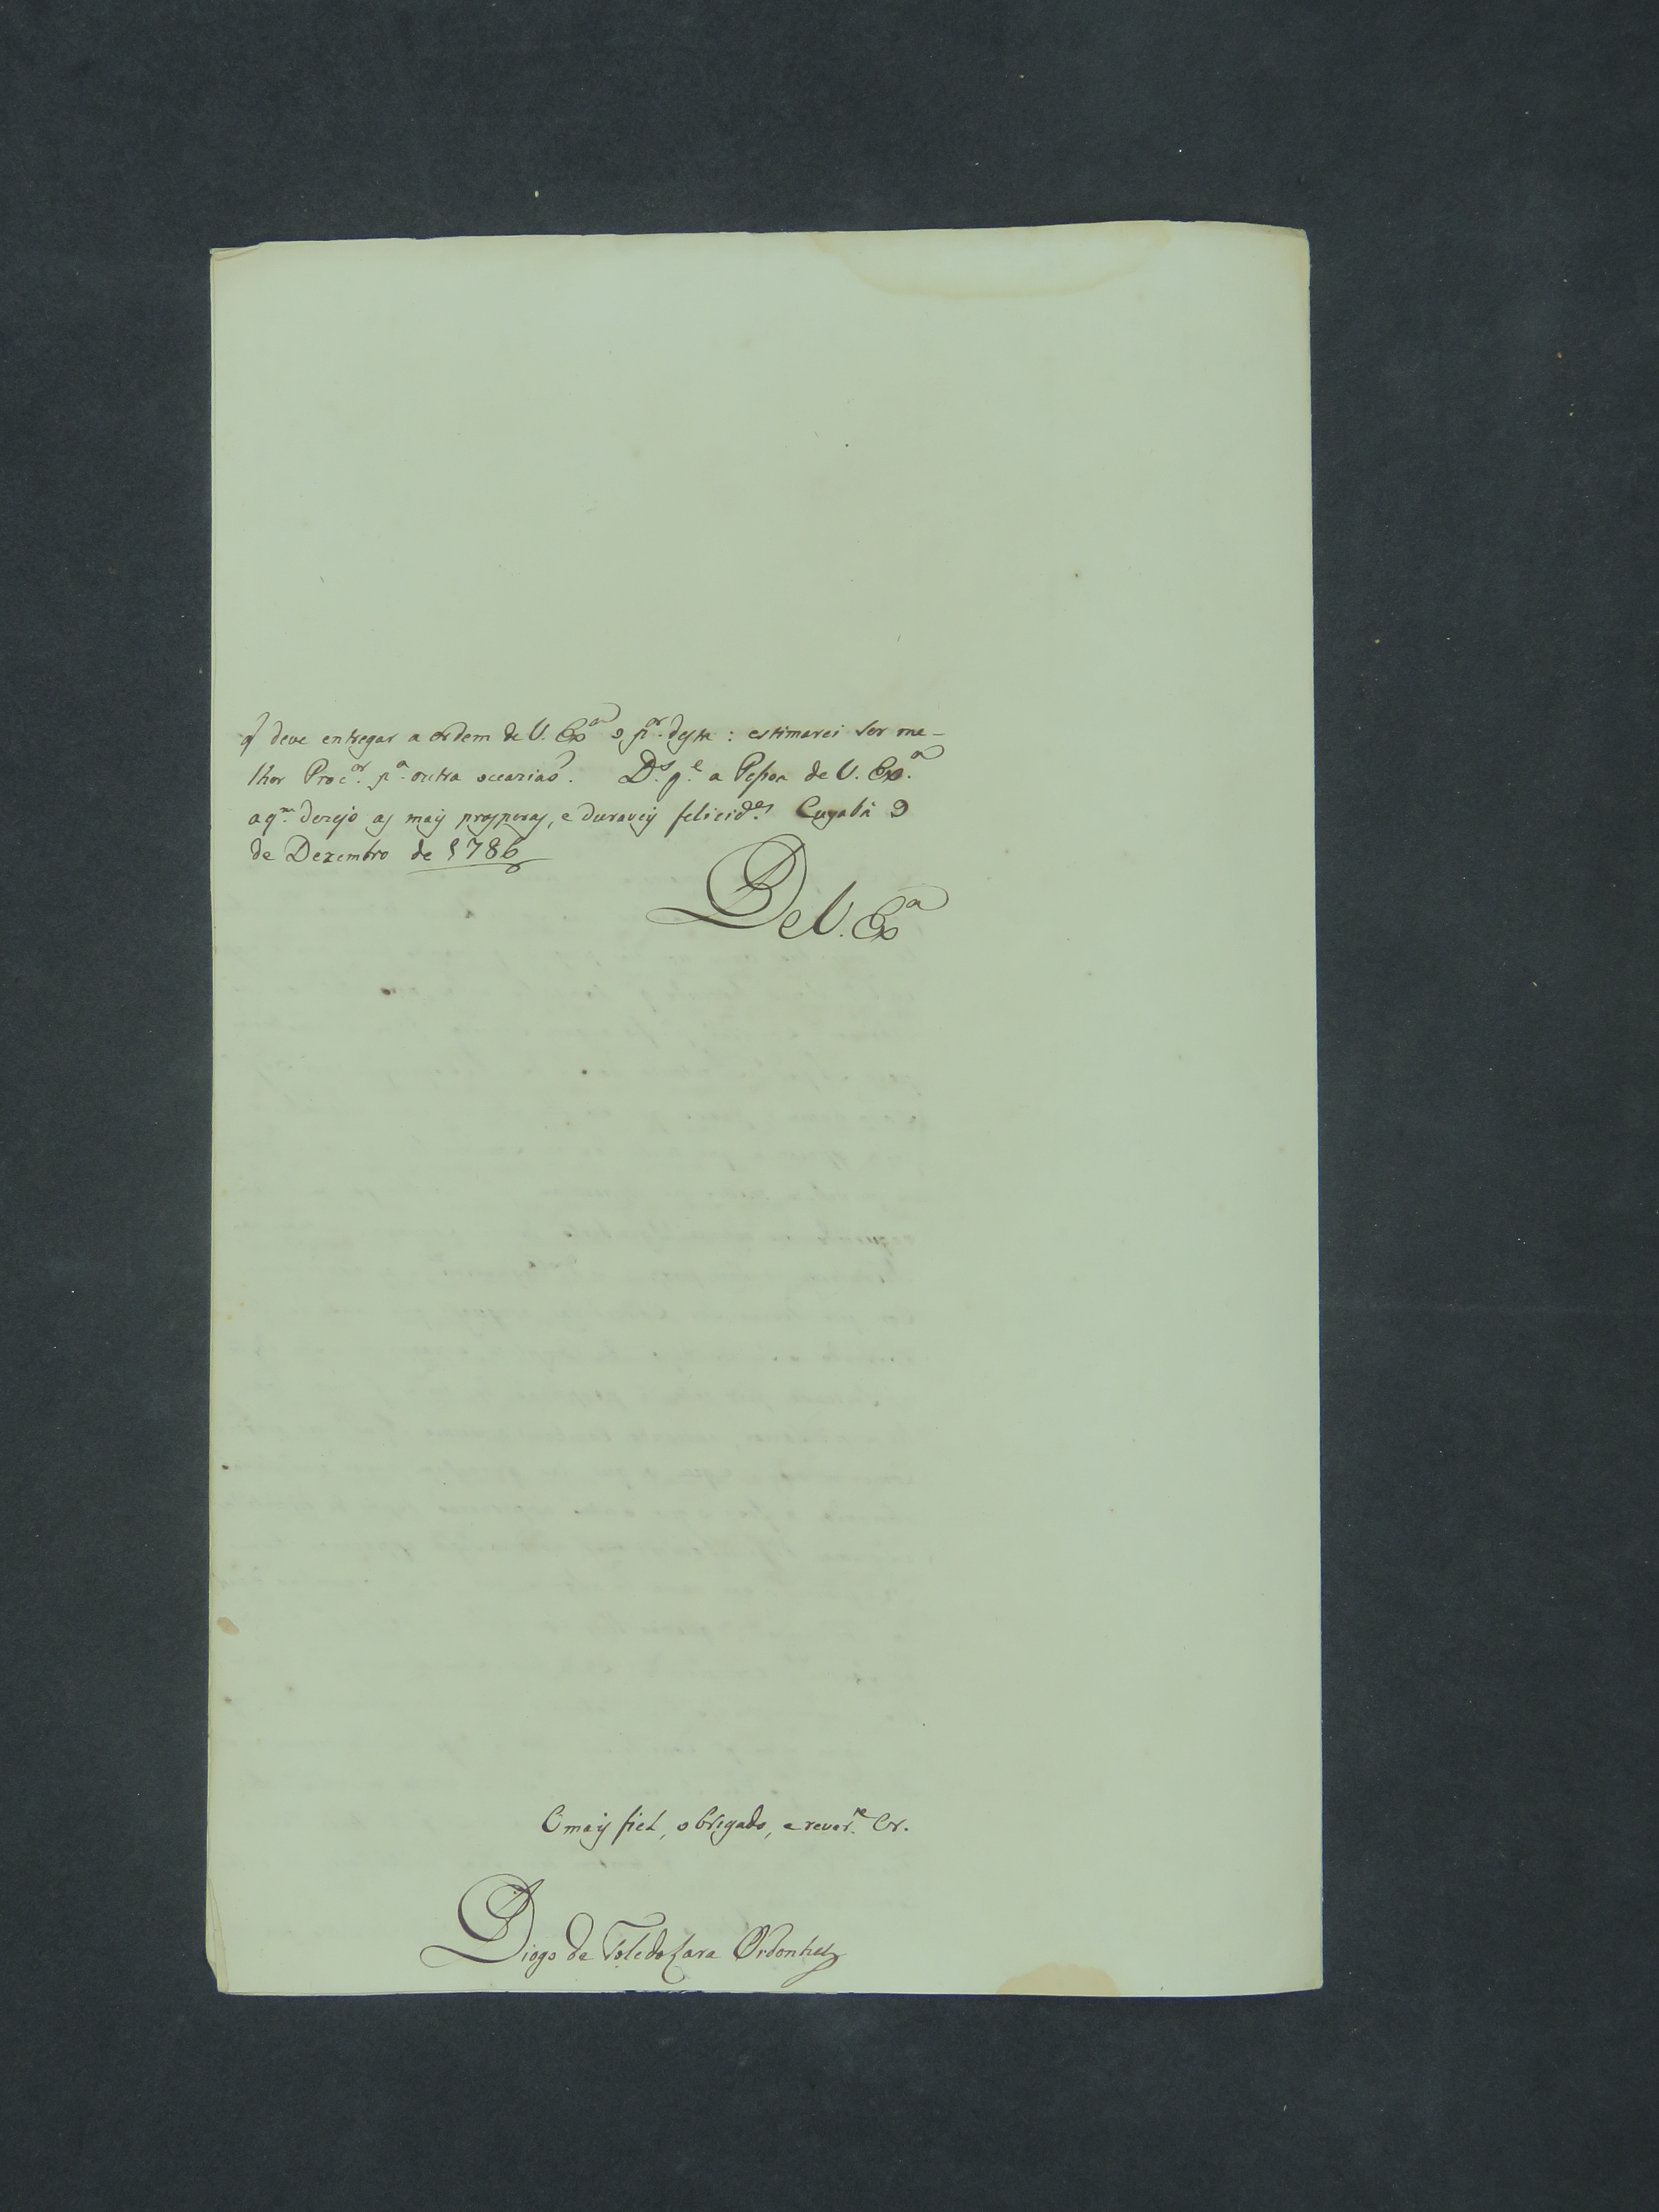 q̃ deve entregar a ordem de V. Exª o p.ᵒʳ desta : estimarei ser me-
lhor Proc.ᵒʳ p.ª outra occazião. D.ˢ g.ᵉ a Pessoa de V. Ex.ª
a q.ᵐ dezejo as mais prosperas, e duraveis felicid.ᵉˢ Cuyabá 9
de Dezembro de 1786
De V. Exª
O mais fiel, obrigado, e rever.ᵗᵉ Cr.
Diogo de Toledo Lara Ordonhes